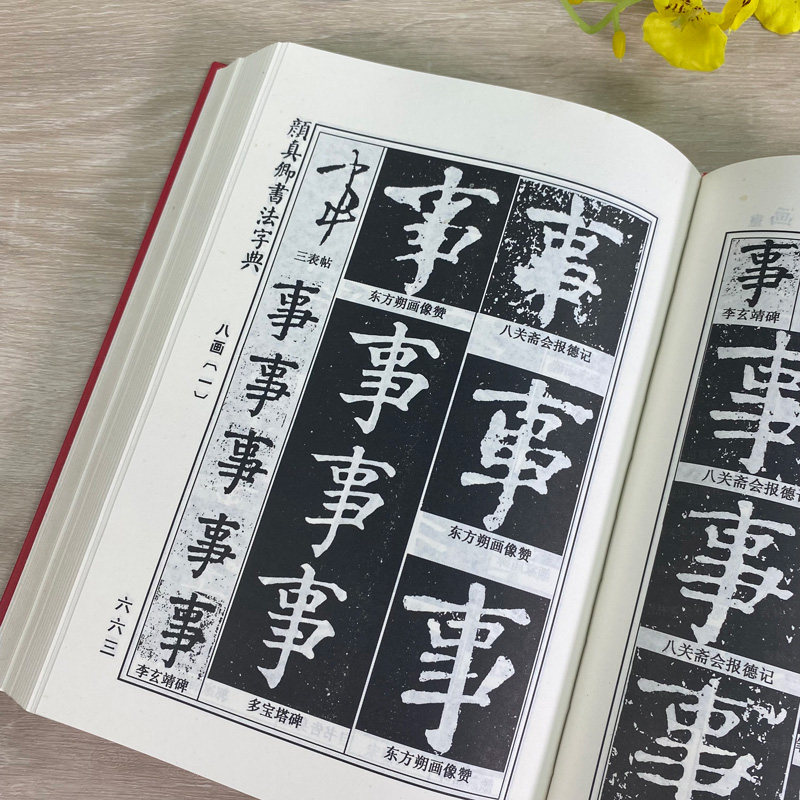 顔真卿書法字典
八画〔一〕
六六三
事
八关斋会报德记
事
东方朔画像赞
事
东方朔画像赞
事
东方朔画像赞
事
事
事
多宝塔碑
事
三表帖
事
事
事
事
事
李玄靖碑
事
李玄靖碑
事
八关斋会报德记
事
八关斋会报德记
事